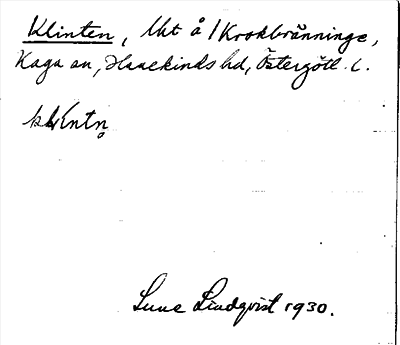 Klinten, Ukt å /Krokbränninge,
Kaga sn, Hanekinds hd, Östergötl. l.
Sune Lindqvist 1930.